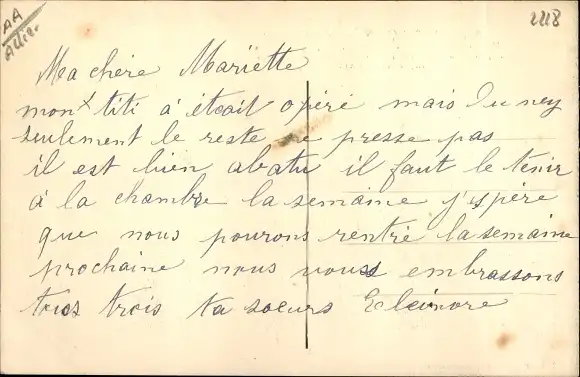 AA
Allier
2218
Ma chère Mariette
mon titi à étcait opéré mais Du ney
seulement le reste ne presse pas
il est bien abatu il faut le ténir
à la chambre la semaine j'espère
que nous pourons rentré la semaine
prochaine nous vouss embrassons
tous trois ta soeurs Eleinore